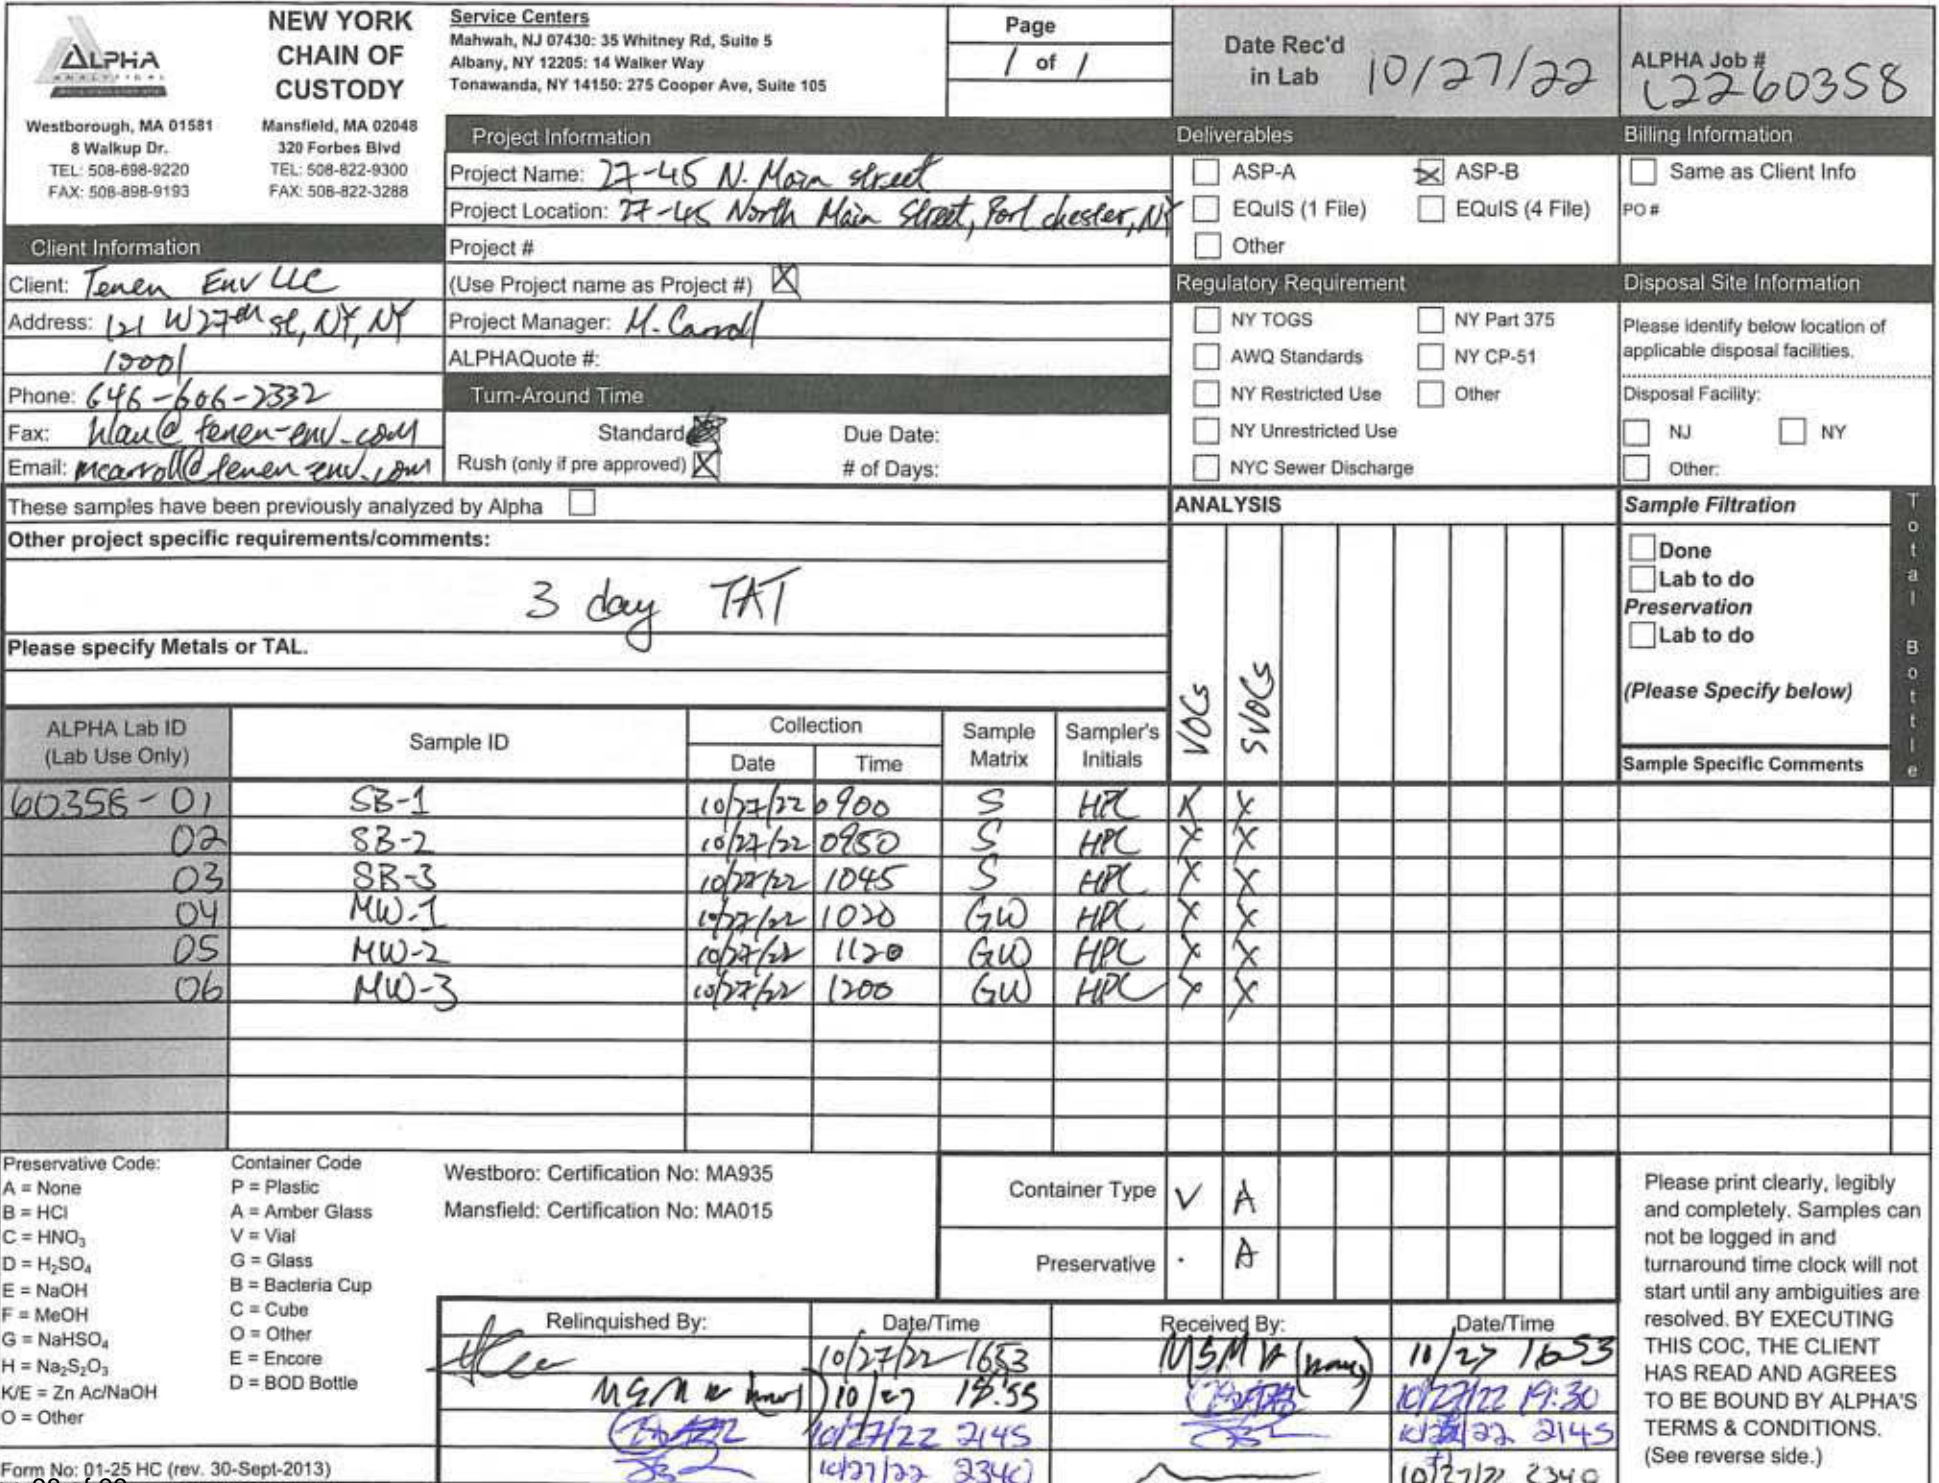 ALPHA
ANALYTICAL
Westborough, MA 01581
8 Walkup Dr.
TEL: 508-898-9220
FAX: 508-898-9193
NEW YORK
CHAIN OF
CUSTODY
Mansfield, MA 02048
320 Forbes Blvd
TEL: 508-822-9300
FAX: 508-822-3288
Service Centers
Mahwah, NJ 07430: 35 Whitney Rd, Suite 5
Albany, NY 12205: 14 Walker Way
Tonawanda, NY 14150: 275 Cooper Ave, Suite 105
Page
1 of 1
Date Rec'd
in Lab 10/27/22
ALPHA Job #
L2260358
Project Information
Project Name: 27-45 N. Main street
Project Location: 27-45 North Main Street, Port chester, NY
Project #
(Use Project name as Project #) X
Project Manager: M. Carroll
ALPHAQuote #:
Turn-Around Time
Standard Due Date:
Rush (only if pre approved) X # of Days:
Client Information
Client: Tenen Env LLC
Address: 121 W 27th st, NY, NY
10001
Phone: 646-606-2332
Fax: hlau@tenen-env.com
Email: mcarroll@tenen-env.com
Deliverables
ASP-A X ASP-B
EQuIS (1 File) EQuIS (4 File)
Other
Regulatory Requirement
NY TOGS NY Part 375
AWQ Standards NY CP-51
NY Restricted Use Other
NY Unrestricted Use
NYC Sewer Discharge
Billing Information
Same as Client Info
PO #
Disposal Site Information
Please identify below location of
applicable disposal facilities.
Disposal Facility:
NJ NY
Other:
These samples have been previously analyzed by Alpha
Other project specific requirements/comments:
3 day TAT
Please specify Metals or TAL.
ANALYSIS
VOCs
SVOCs
Sample Filtration
Done
Lab to do
Preservation
Lab to do
(Please Specify below)
Sample Specific Comments
Total Bottle
ALPHA Lab ID
(Lab Use Only)
Sample ID
Collection
Date Time
Sample
Matrix
Sampler's
Initials
60358-01 SB-1 10/27/22 0900 S HPC X X
02 SB-2 10/27/22 0950 S HPC X X
03 SB-3 10/27/22 1045 S HPC X X
04 MW-1 10/27/22 1020 GW HPC X X
05 MW-2 10/27/22 1120 GW HPC X X
06 MW-3 10/27/22 1200 GW HPC X X
Preservative Code:
A = None
B = HCl
C = HNO3
D = H2SO4
E = NaOH
F = MeOH
G = NaHSO4
H = Na2S2O3
K/E = Zn Ac/NaOH
O = Other
Container Code
P = Plastic
A = Amber Glass
V = Vial
G = Glass
B = Bacteria Cup
C = Cube
O = Other
E = Encore
D = BOD Bottle
Westboro: Certification No: MA935
Mansfield: Certification No: MA015
Container Type V A
Preservative A
Relinquished By: Date/Time Received By: Date/Time
10/27/22 1653 10/27 1653
10/27 18:55 10/27/22 19:30
10/27/22 2145 2145
10/27/22 2340 10/27/22 2340
Please print clearly, legibly
and completely. Samples can
not be logged in and
turnaround time clock will not
start until any ambiguities are
resolved. BY EXECUTING
THIS COC, THE CLIENT
HAS READ AND AGREES
TO BE BOUND BY ALPHA'S
TERMS & CONDITIONS.
(See reverse side.)
Form No: 01-25 HC (rev. 30-Sept-2013)